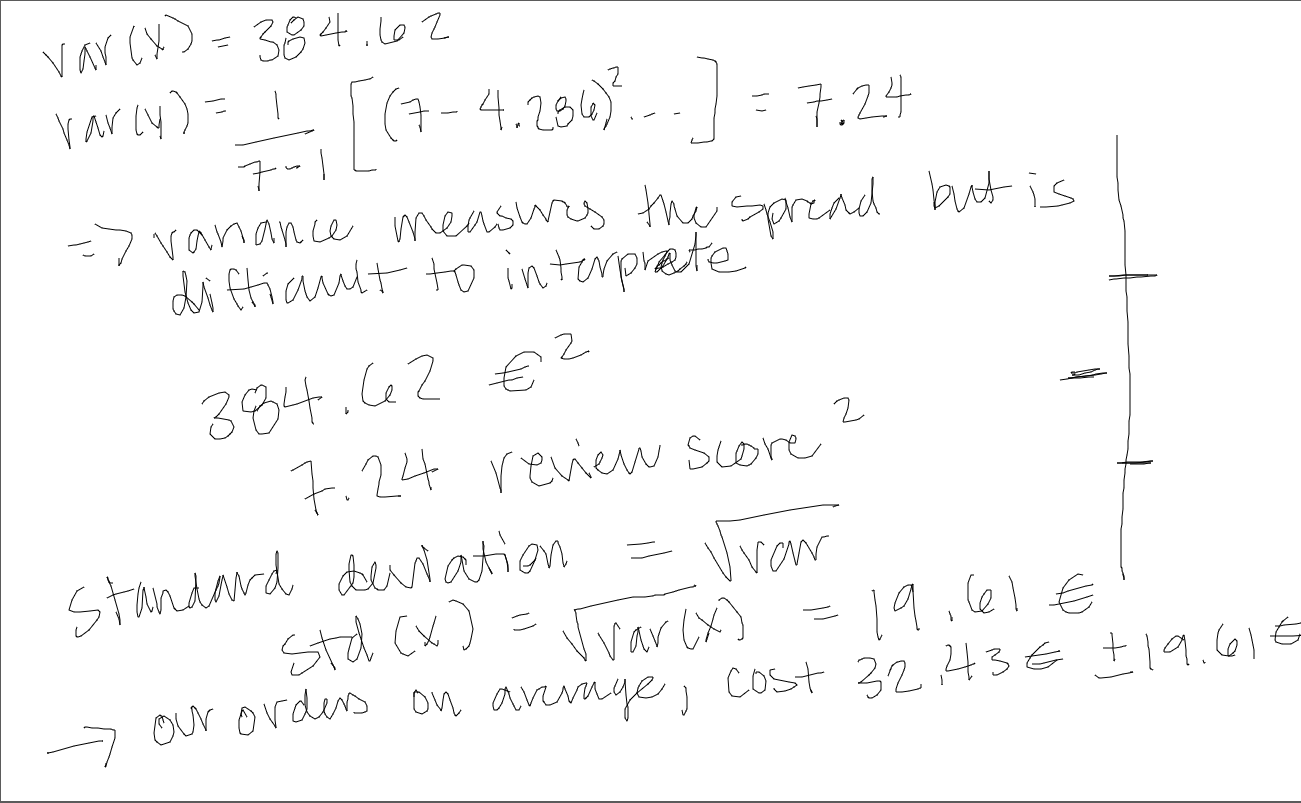 var(X) = 384.62
var(y) = 1/7-1 [(7-4.286)²...] = 7.24
=> variance measures the spread but is
difficult to interprete
384.62 €²
7.24 review score²
standard deviation = √var
std(X) = √var(X) = 19.61 €
→ our orders on average, cost 32.43€ ±19.61€